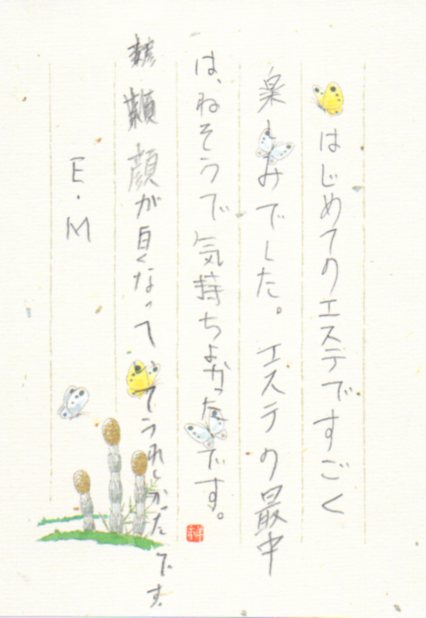 はじめてのエステですごく
楽しみでした。エステの最中
は、ねそうで気持ちよかったです。
顔が白くなって てうれしかったです。
E.M